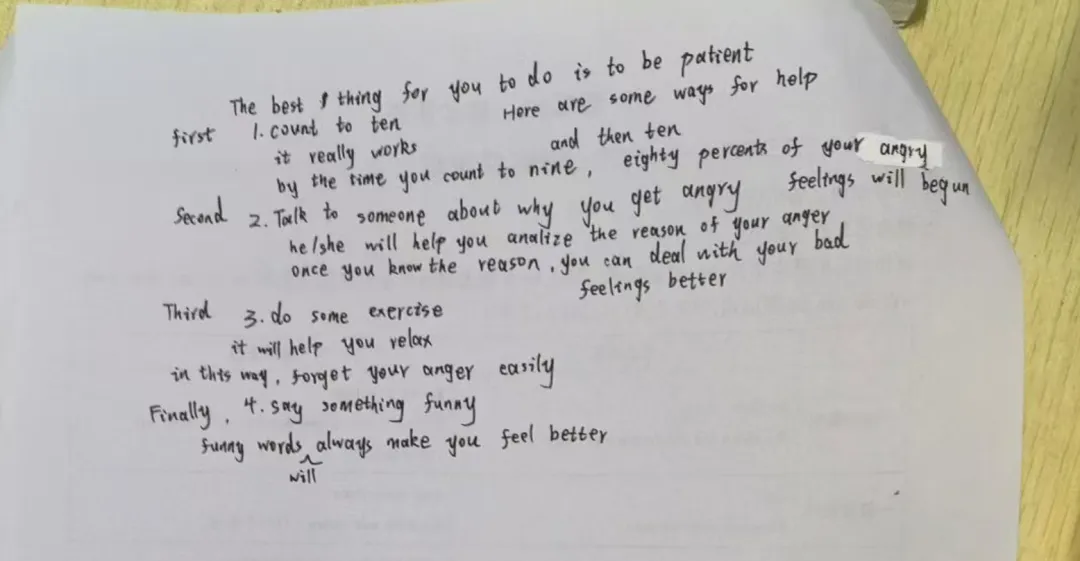 The best thing for you to do is to be patient
Here are some ways for help
first 1. count to ten
it really works and then ten
by the time you count to nine, eighty percents of your angry feelings will begun
Second 2. Talk to someone about why you get angry
he/she will help you analize the reason of your anger
once you know the reason, you can deal with your bad
feelings better
Third 3. do some exercise
it will help you relax
in this way, forget your anger easily
Finally, 4. say something funny
funny words will always make you feel better